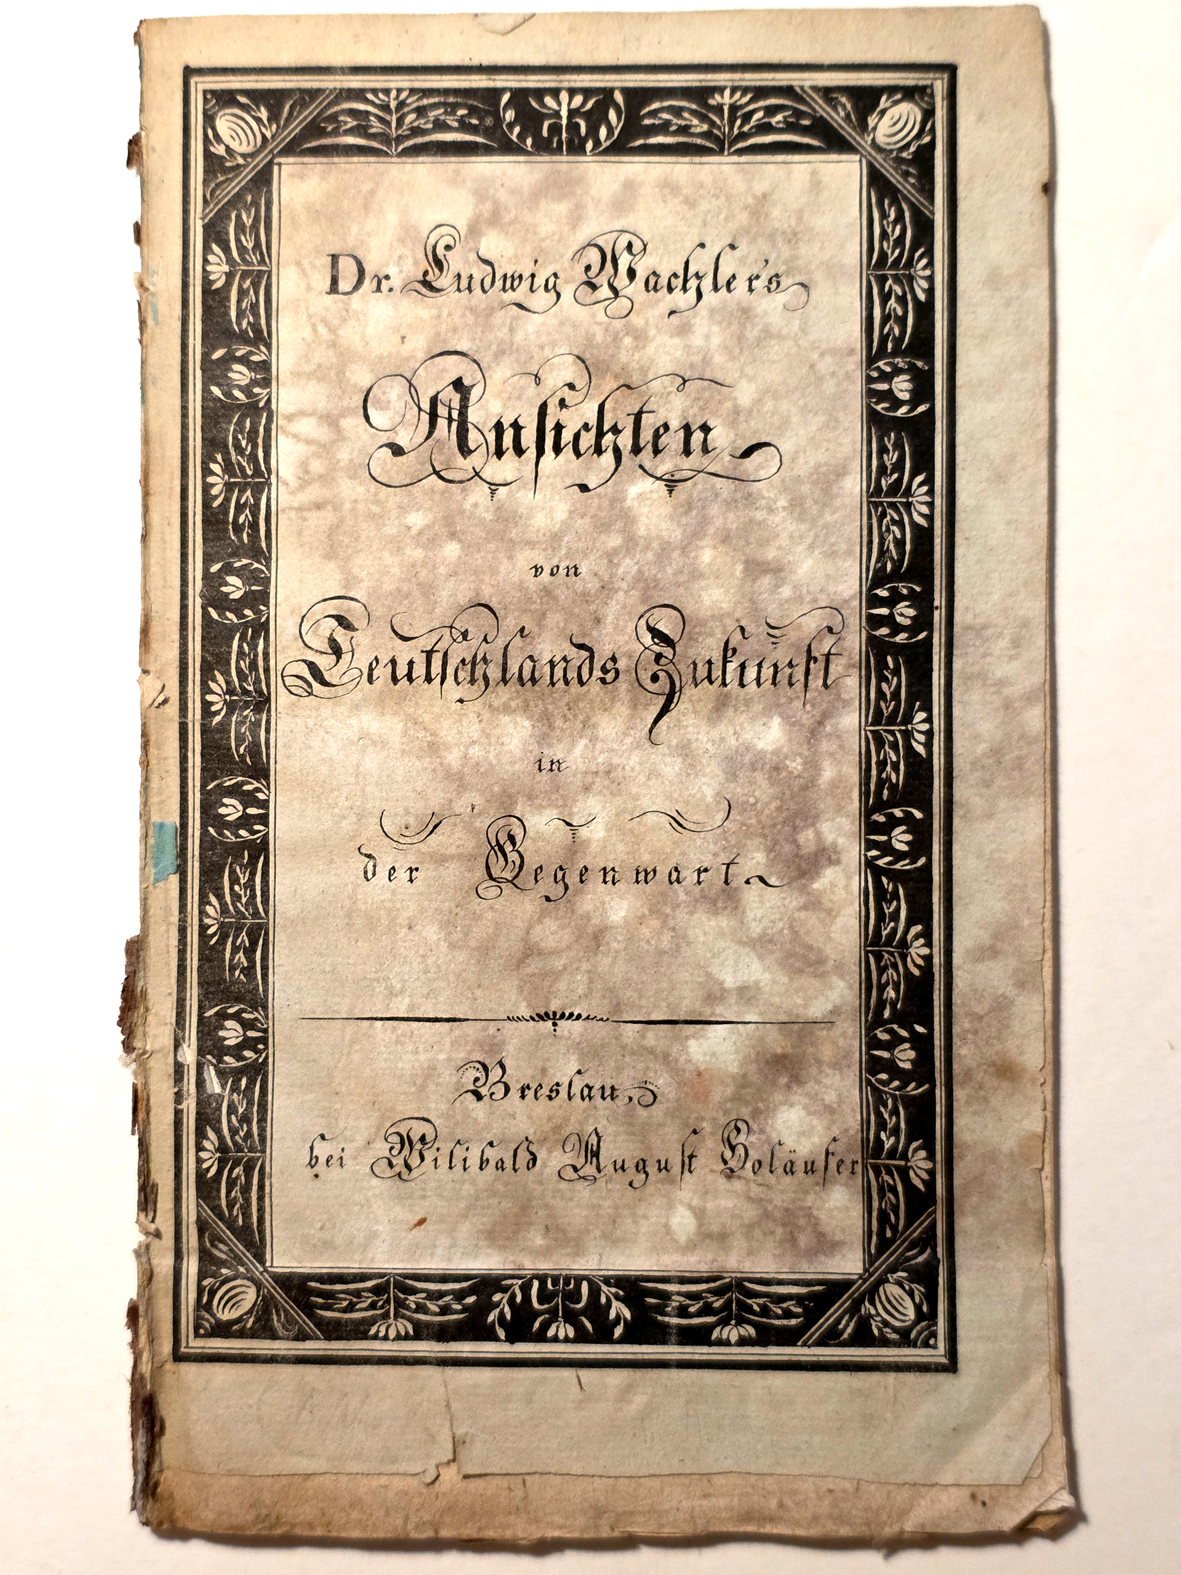 Dr. Ludwig Wachler's
Ansichten
von
Teutschlands Zukunft
in
der Gegenwart.
Breslau,
bei Wilibald August Holäufer